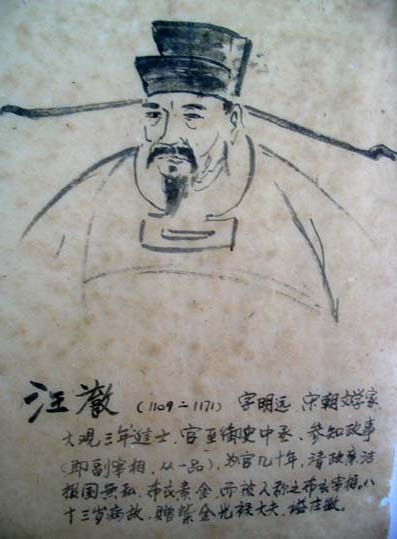 汪澈 (1109-1171) 字明远 宋朝文学家
大观三年进士.官至御史中丞.参知政事
(即副宰相,从一品),为官几十年,清政廉洁
报国无私.布衣素食.而被人称之布衣宰相.六
十三岁病故.赠紫金光禄大夫.谥庄敏.